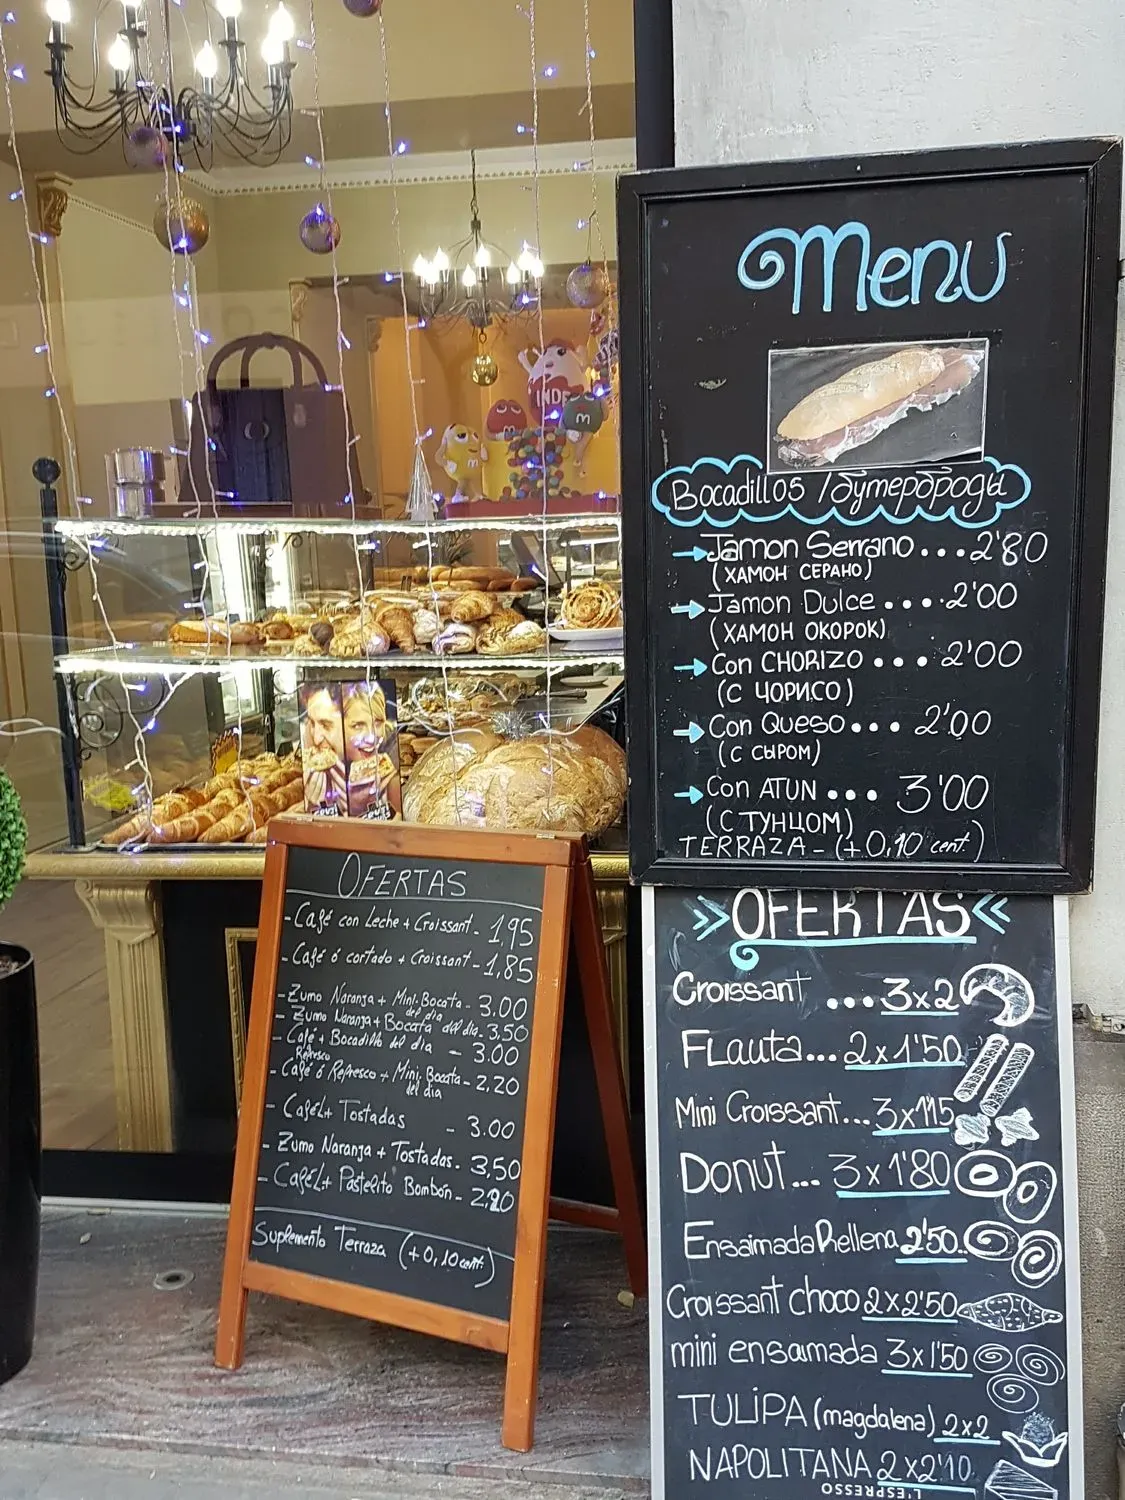 Menu
Bocadillos / бутерброды
Jamon Serrano ... 2'80
(ХАМОН СЕРАНО)
Jamon Dulce .... 2'00
(ХАМОН ОКОРОК)
Con CHORIZO ... 2'00
(С ЧОРИСО)
Con Queso ... 2'00
(С СЫРОМ)
Con ATUN ... 3'00
(С ТУНЦОМ)
TERRAZA - (+0,10 cent.)
OFERTAS
Croissant ... 3x2
Flauta... 2x1'50
Mini Croissant... 3x1'15
DONUT... 3x1'80
Ensaimada Rellena 2'50..
Croissant choco 2x2'50
mini ensaimada 3x1'50
TULIPA (magdalena) 2x2
NAPOLITANA 2x2'10
L'ESPRESSO
OFERTAS
- Café con Leche + Croissant - 1,95
- Café ó cortado + Croissant - 1,85
- Zumo Naranja + Mini-Bocata - 3.00
del día
- Zumo Naranja + Bocata del día - 3,50
- Café + Bocadillo del día - 3.00
Refresco
- Café ó Refresco + Mini. Bocata - 2,20
del día
- Café L + Tostadas - 3.00
- Zumo Naranja + Tostadas - 3,50
- Café L + Pastelito Bombón - 2,20
Suplemento Terraza (+0,10 cent.)
INDE
m
m